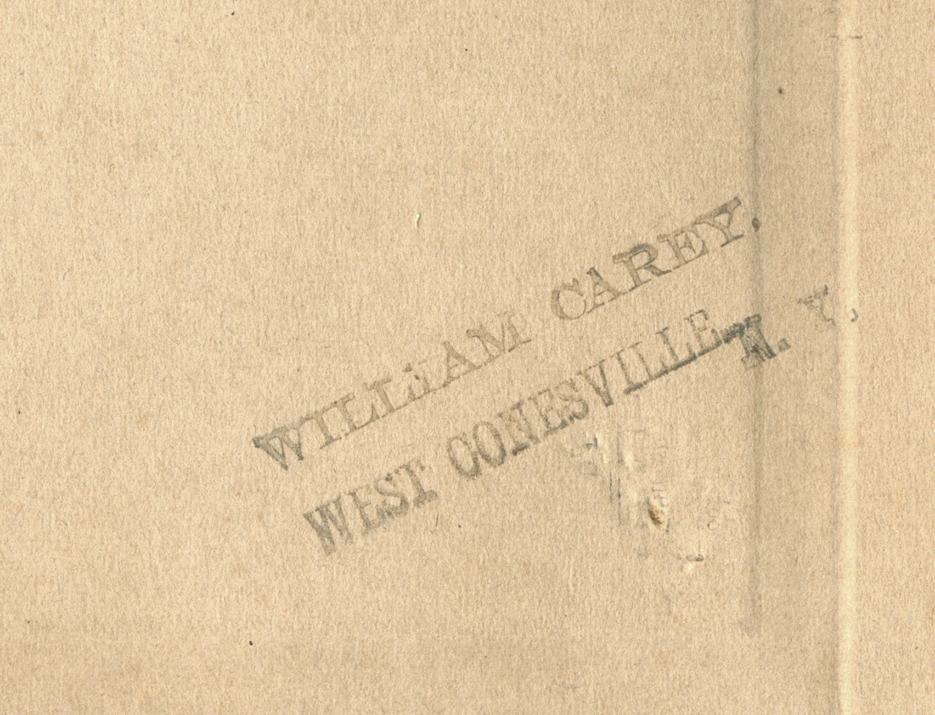 WILLIAM CAREY.
WEST CONESVILLE, N. Y.